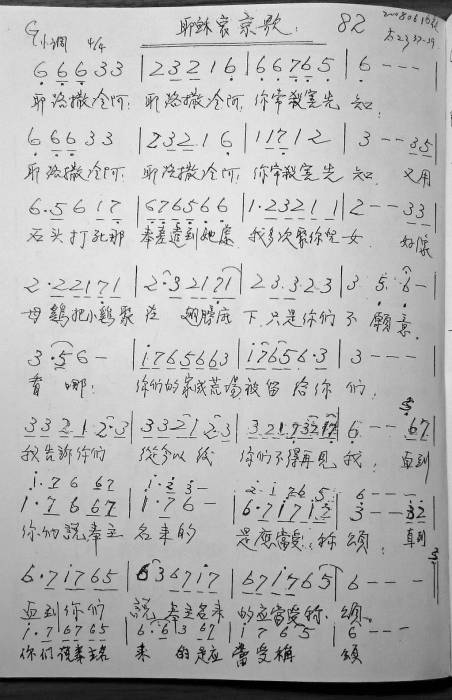 G小调 4/4 耶穌哀京歌: 82 20080616
太23 37-39
6 6 6 3 3 | 2 3 2 1 6 | 6 6 7 6 5 | 6 - - -
耶路撒冷阿: 耶路撒冷阿, 你常殺害先 知;
6 6 6 3 3 | 2 3 2 1 6 | 1 1 7 1 2 | 3 - - 3 5
耶路撒冷阿: 耶路撒冷阿, 你常殺害先 知. 又用
6·5 6 1 7 | 6 7 6 5 6 6 | 1·2 3 2 1 1 | 2 - - 3 3
石头打死那 奉差遣到她 我多次聚你兒 女. 好像
2·2 2 1 7 1 | 2·3 2 1 7 1 | 2 3·3 2 3 | 3 5·6 -
母鷄把小鷄聚 在 翅膀底 下.只是你們 不 願意.
3·5 6 - | i 7 6 5 6 6 3 | i 7 6 5 6·3 | 3 - - -
看 哪: 你們的家成荒場 被留 給你 們;
3 3 2 1 2·3 | 3 3 2 1 2 3 | 3 2 1 7 3 2 1 7 | 6 - - 6 7
我告訴你們 從今以後 你們不得再見 我; 直到
i·7 6 6 7 | i·2 3 - | 2·i 7 6 5 | 6 - - -
1·7 6 6 7 | 1·7 6 - | 6·7 1 7 1 2 | 3 - - 3 2
你们説奉主 名來的 是應當受 称 頌; 直到
6·7 i 7 6 5 | 6 3 6 7 i 7 | 6 7 i 7 6 5 | 6 - - -
直到你们 説奉主名來 的应當受称 頌.
i·7 6 7 6 5 | 6·6 3 6 7 | i 7 6 5 | 6 - - -
你们説奉主名 來 的是应 當受稱 頌